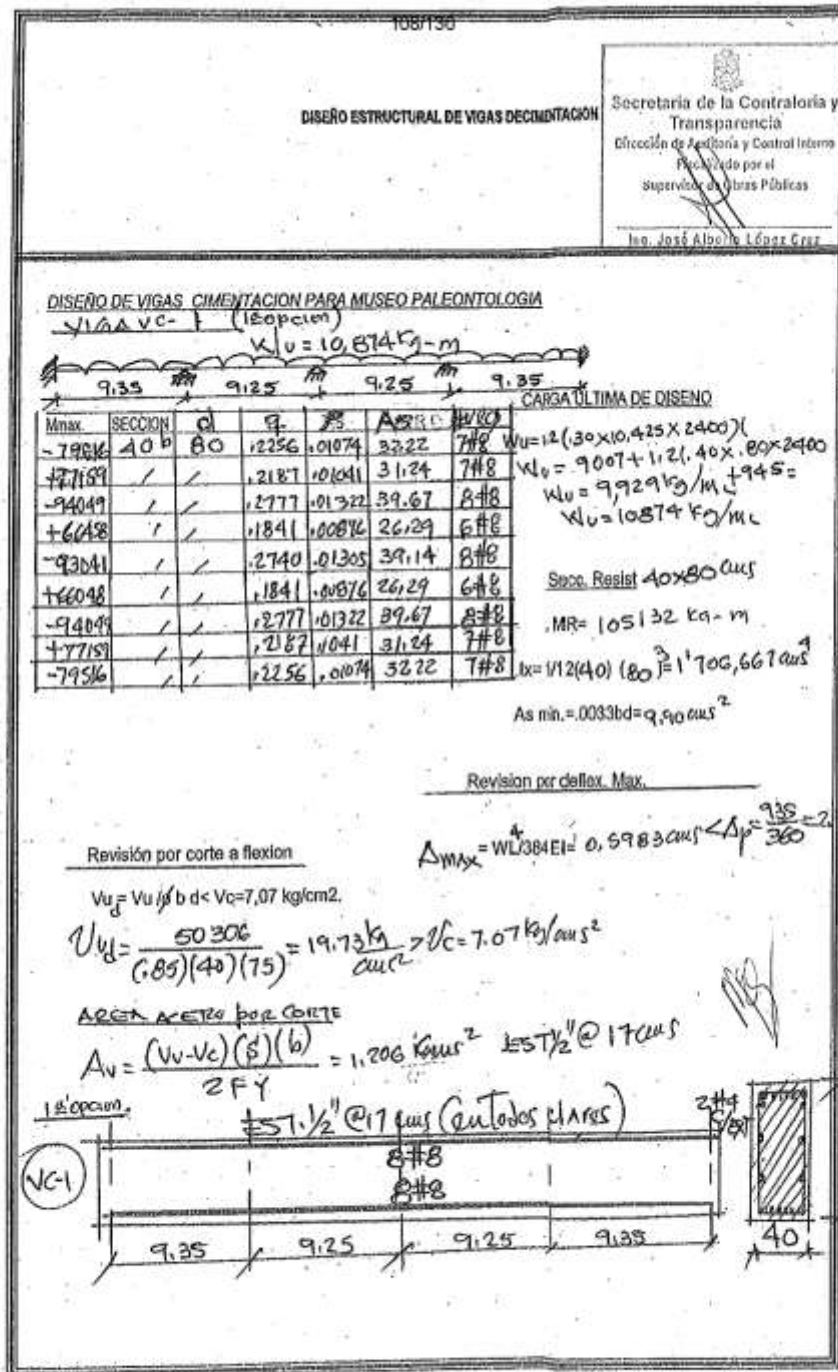 108/130
DISEÑO ESTRUCTURAL DE VIGAS DECIMENTACION
Secretaría de la Contraloría y
Transparencia
Dirección de Auditoría y Control Interno
Fiscalizado por el
Supervisor de Obras Públicas
Ing. José Alberto López Cruz
DISEÑO DE VIGAS CIMENTACION PARA MUSEO PALEONTOLOGIA
VIGA VC-1 (1ª opcion)
Wu = 10,874 Kg-m
9.35 9.25 9.25 9.35
CARGA ÚLTIMA DE DISEÑO
Mmax. SECCION d q
-79516 40b 80 .2256 .01074 32.22 7#8
+77159 / / .2187 .01041 31.24 7#8
-94049 / / .2777 .01322 39.67 8#8
+66458 / / .1841 .00876 26.29 6#8
-93041 / / .2740 .01305 39.14 8#8
+66048 / / .1841 .00876 26.29 6#8
-94049 / / .2777 .01322 39.67 8#8
+77159 / / .2187 .1041 31.24 7#8
-79516 / / .2256 .01074 32.22 7#8
Wu=1.2(.30x10.425x2400)(
Wu = 9007+1.2(.40x.80x2400
Wu = 9,929 kg/mL +945=
Wu=10874 kg/mL
Secc. Resist 40x80 cms
MR= 105132 kg-m
Ix= 1/12(40) (80)³=1'706,667 cms⁴
As min.=.0033bd= 9.90 cms²
Revision por deflex. Max.
Δmax=WL⁴/384EI= 0.5983 cms < Δp= 935/360 =2.
Revisión por corte a flexion
Vud= Vu /ø b d< Vc=7,07 kg/cm2.
Vud = 50306/(.85)(40)(75) = 19.73 kg/cm² > Vc = 7.07 kg/cms²
AREA ACERO POR CORTE
Av = (Vu-Vc)(S)(b)/2FY = 1.206 cms² EST 1/2" @ 17 cms
1ª opcion.
EST. 1/2" @17 cms (en todos claros)
2#4
8#8
VC-1
8#8
9.35 9.25 9.25 9.35
40